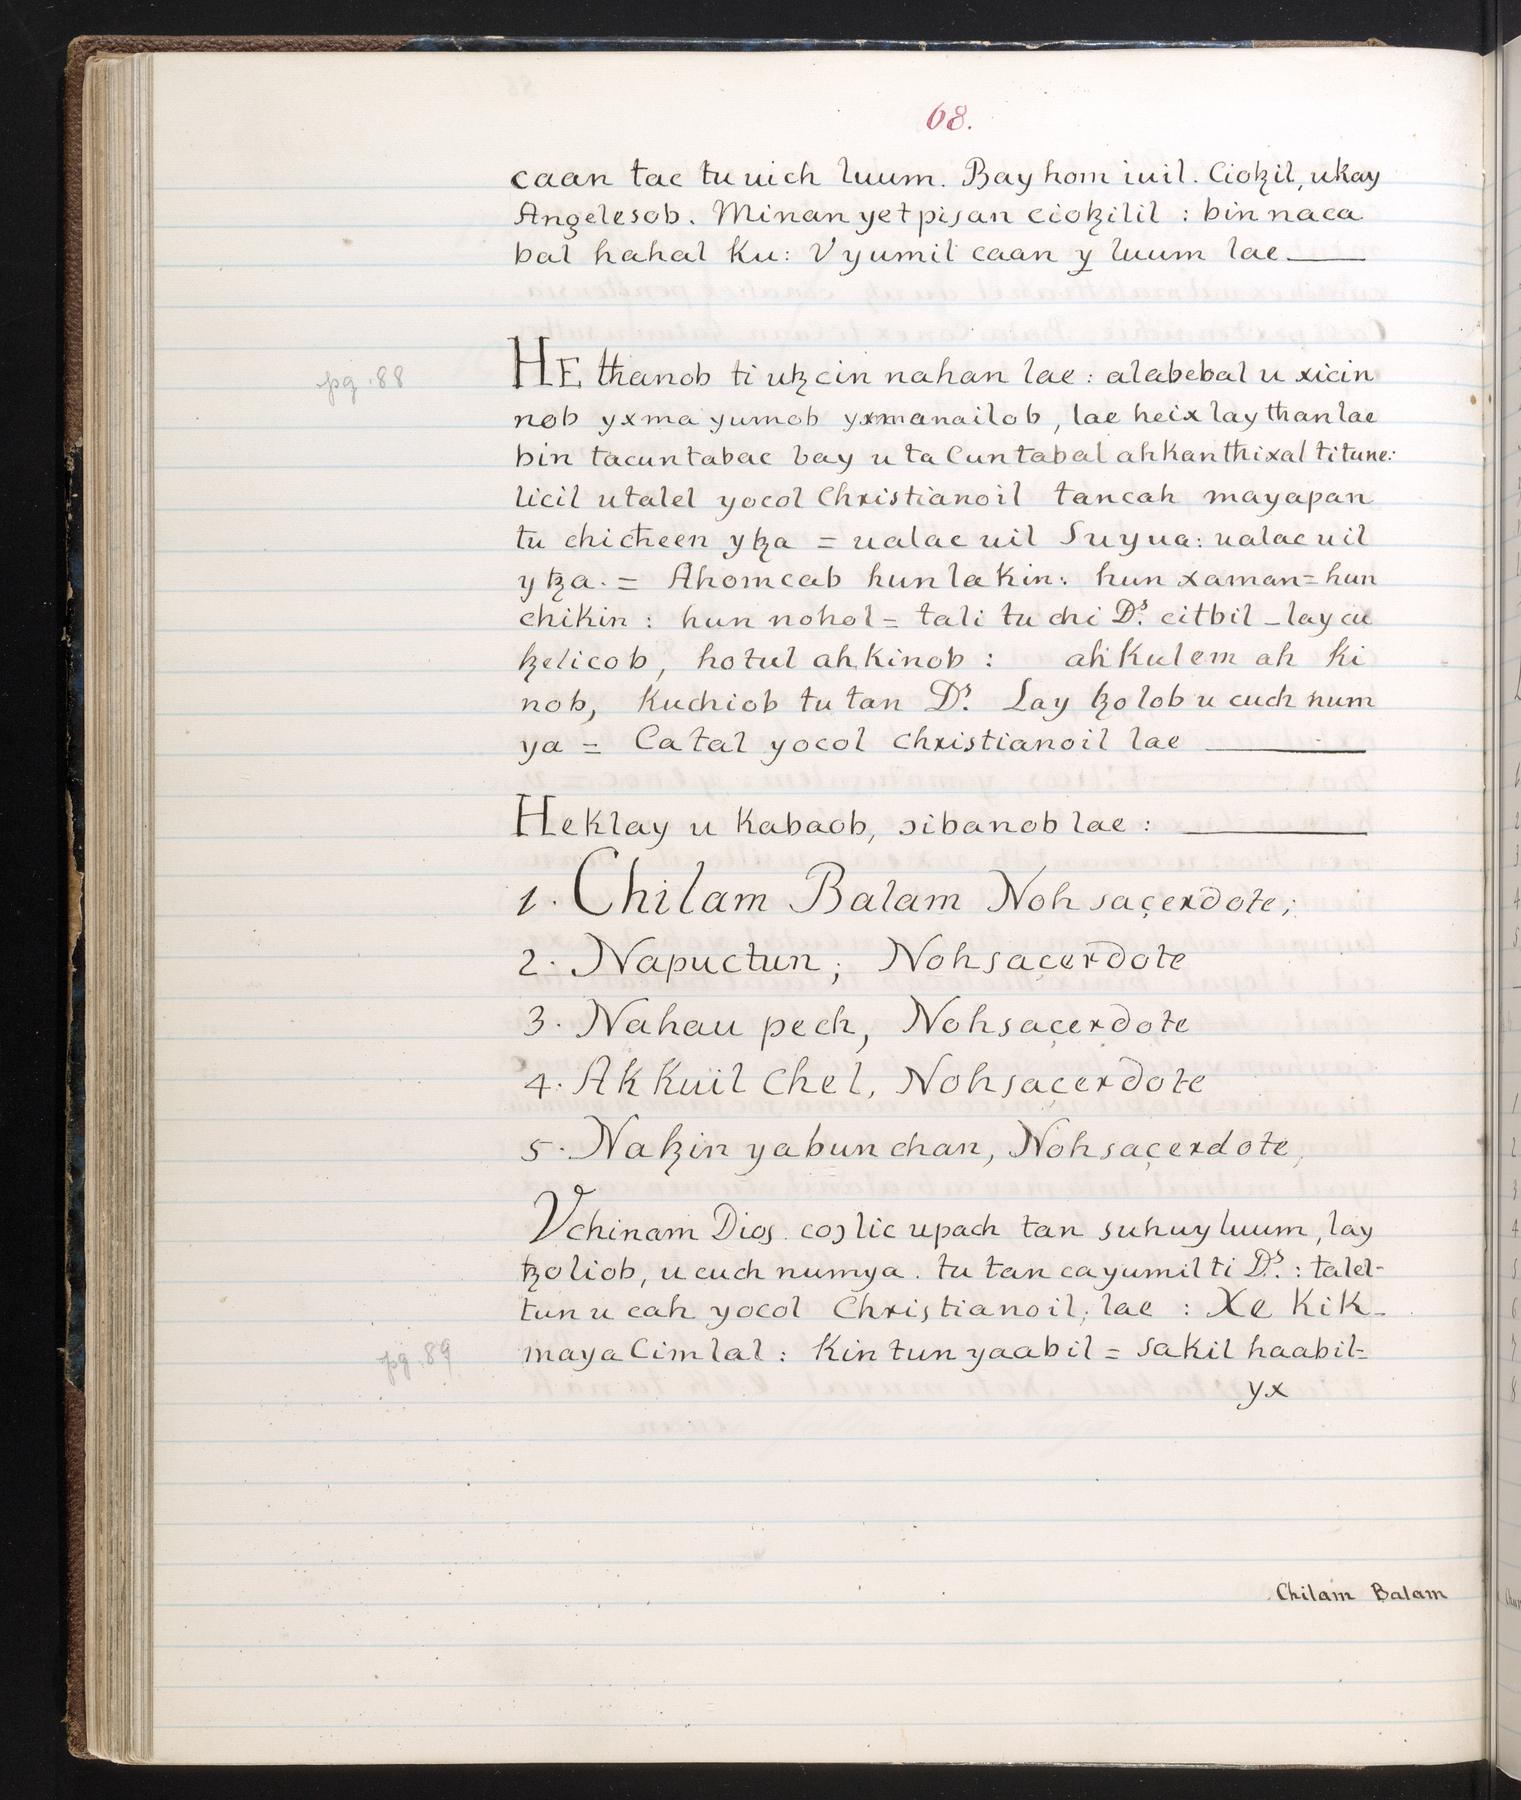 68.
caan tac tu uich luum. Bay hom iuil. Cioꜩil, ukay
Angelesob. Minan yet pisan cioꜩilil : bin naca
bal hahal Ku: Vyumil caan y̱ luum lae
pg. 88
HE thanob ti uꜩcin nahan lae : alabebal u xicin
nob yxma yumob yxmanailob, lae heix lay than lae
bin tacuntabac bay u ta Cuntabal ahkanthixal titune:
licil utalel yocol Christianoil tancah mayapan
tu chicheen yꜩa = ualac uil Suyua: ualac uil
yꜩa. = Ahomcab hun lakin: hun xaman = hun
chikin : hun nohol = tali tu chi Dˢ. citbil _ lay cu
ꜩelicob, hotul ah kinob : ah Kulem ah ki
nob, Kuchiob tu tan Dˢ. Lay ꜩolob u cuch num
ya = Ca tal yocol christianoil lae
Heklay u Kabaob, ɔibanob lae :
1. Chilam Balam Noh saçerdote;
2. Napuctun; Noh saçerdote
3. Nahau pech, Noh saçerdote
4. Ak Kuil Chel, Noh saçerdote
5. Naꜩin yabun chan, Noh saçerdote,
Vchinam Dios. coɔlic upach tan suhuy luum, lay
ꜩoliob, u cuch numya. tu tan cayumil ti Dˢ. : talel-
tun u cah yocol Christianoil; lae : Xe Kik-
pg. 89
maya Cimlal : Kin tun yaabil = sakil haabil=
yx
Chilam Balam